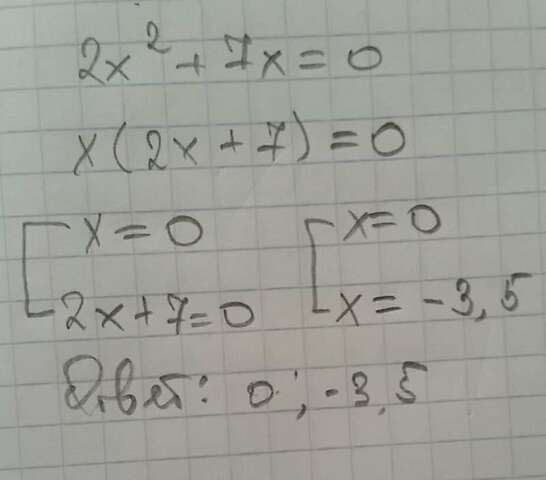 2x² + 7x = 0
x(2x + 7) = 0
[ x = 0 [ x = 0
2x + 7 = 0 x = -3,5
Ответ: 0; -3,5